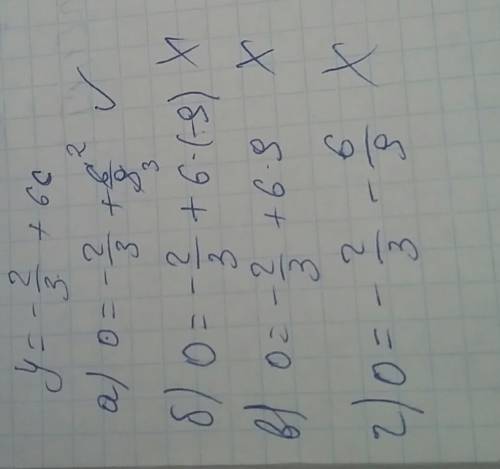 y = -2/3 + 6c
а) 0 = -2/3 + 6/9 2 3 ✓
б) 0 = -2/3 + 6·(-9) X
в) 0 = -2/3 + 6·9 X
г) 0 = -2/3 - 6/9 X